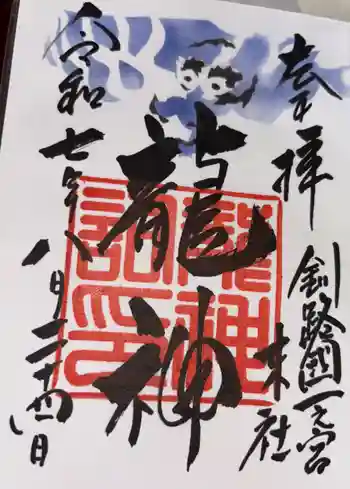 奉拝
釧路國一之宮
末社
龍神
令和七年八月二十四日